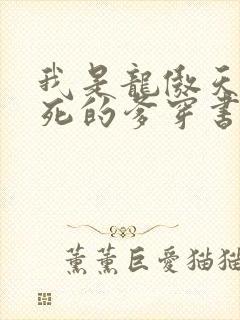 我是龍傲天
死的爹穿書
薰薰巨愛猫猫